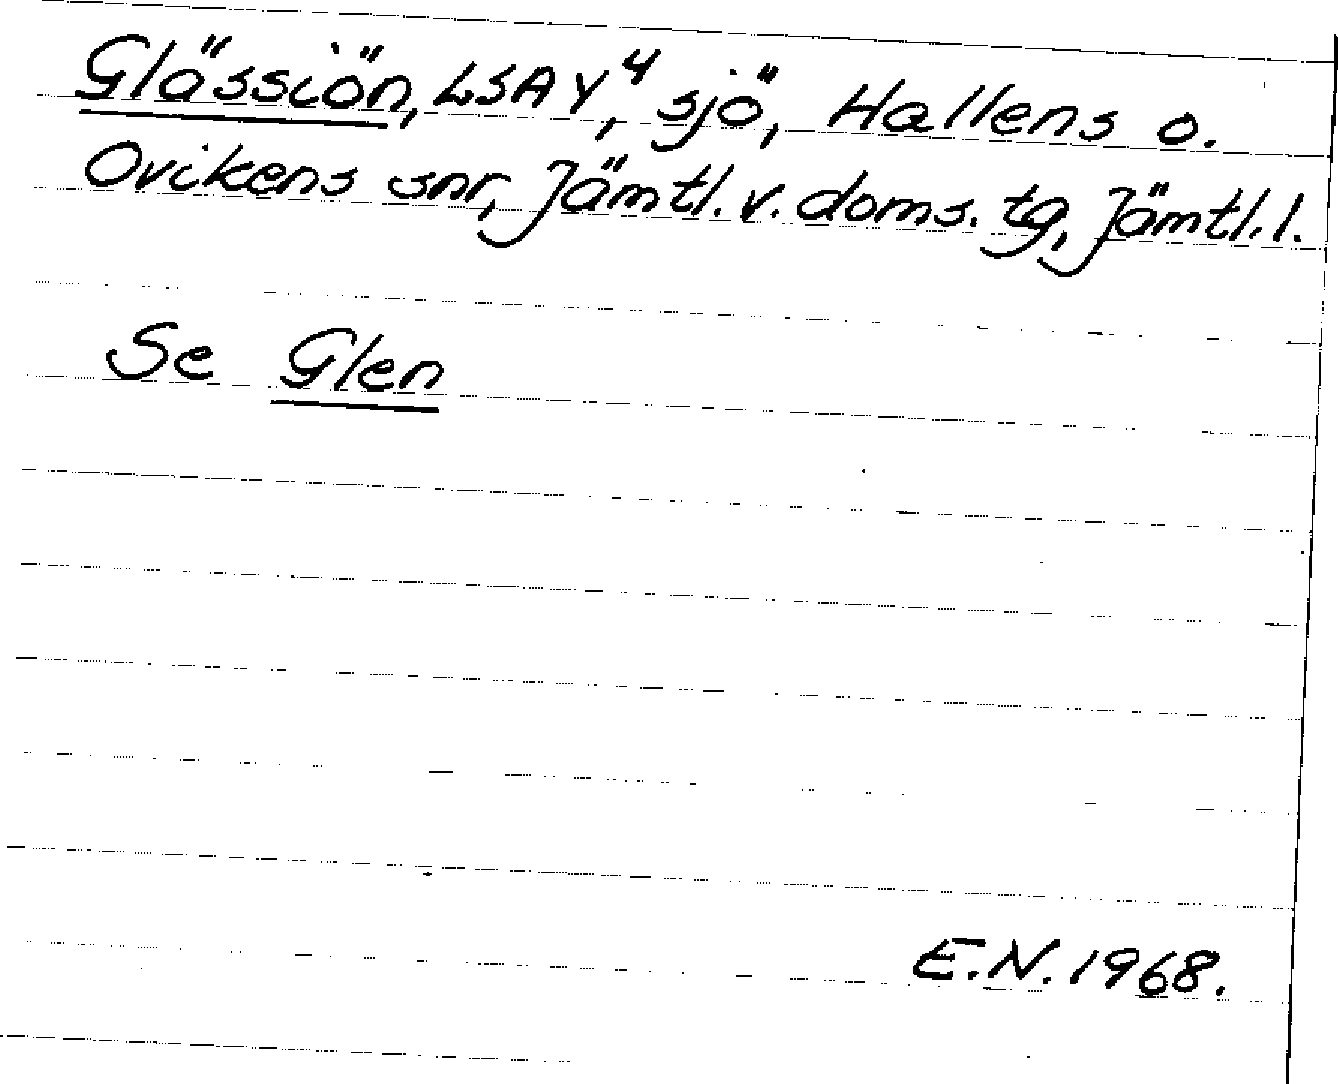 Glässiön, LSA Y⁴, sjö, Hallens o.
Ovikens snr, Jämtl. v. doms. tg, Jämtl. l.
Se Glen
E.N. 1968.